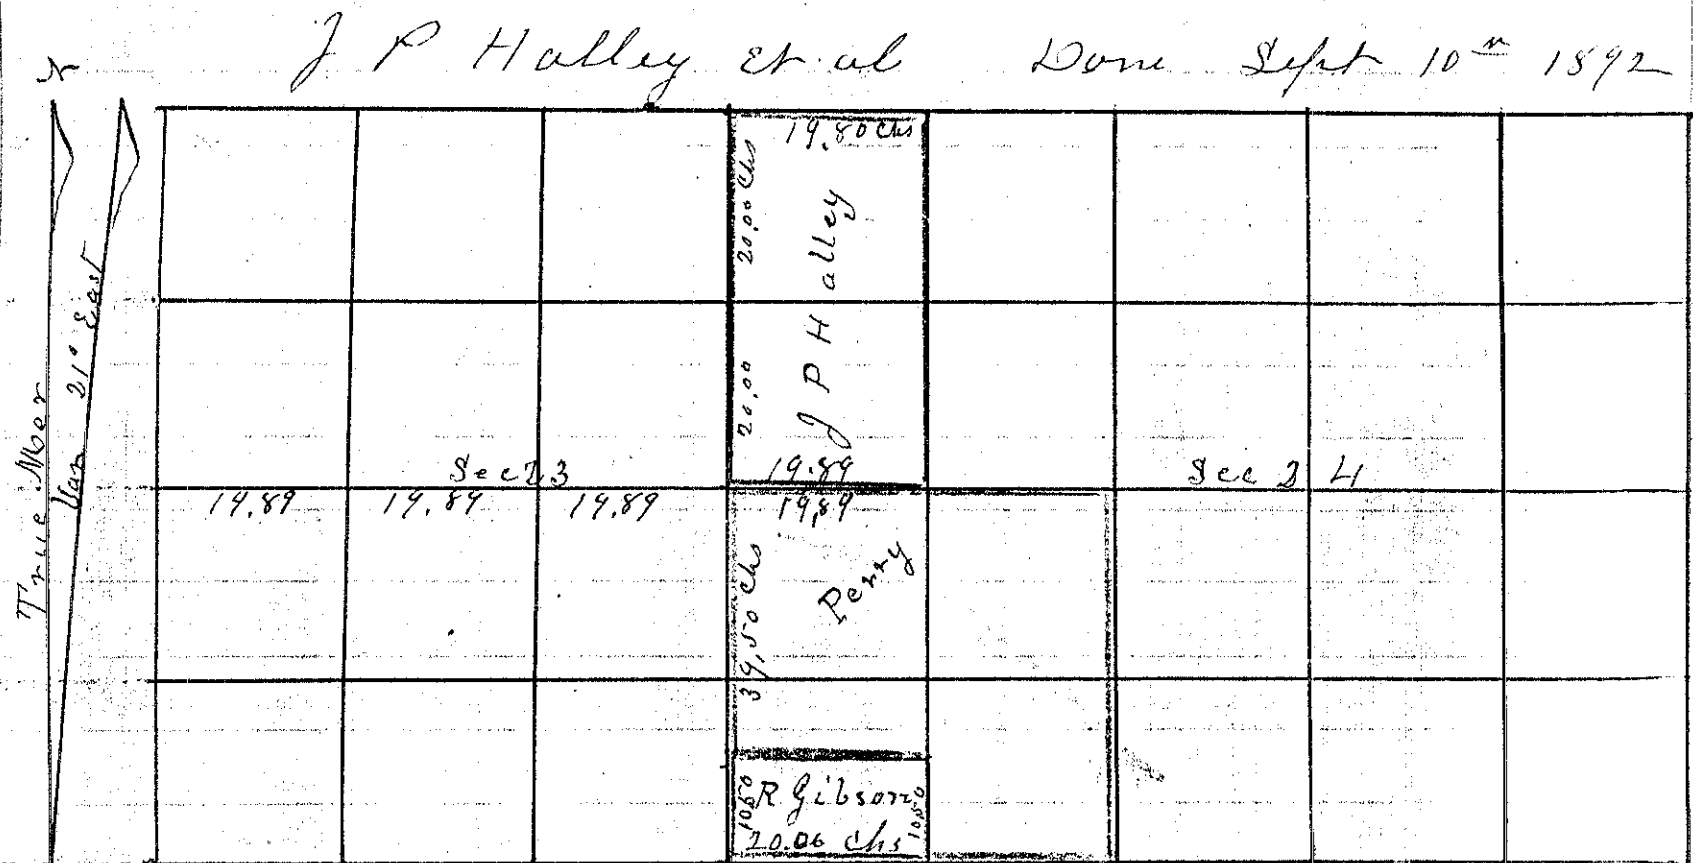 N
J P Halley Et al Done Sept 10th 1892
True Mer
Var 21° East
19.80 Chs
20.00 Chs
J P Halley
20.00
19.89
Sec 23
Sec 24
19.89 19.89 19.89 19,89
39,50 Chs
Perry
10.50
R. Gibson
10.50
20.06 Chs